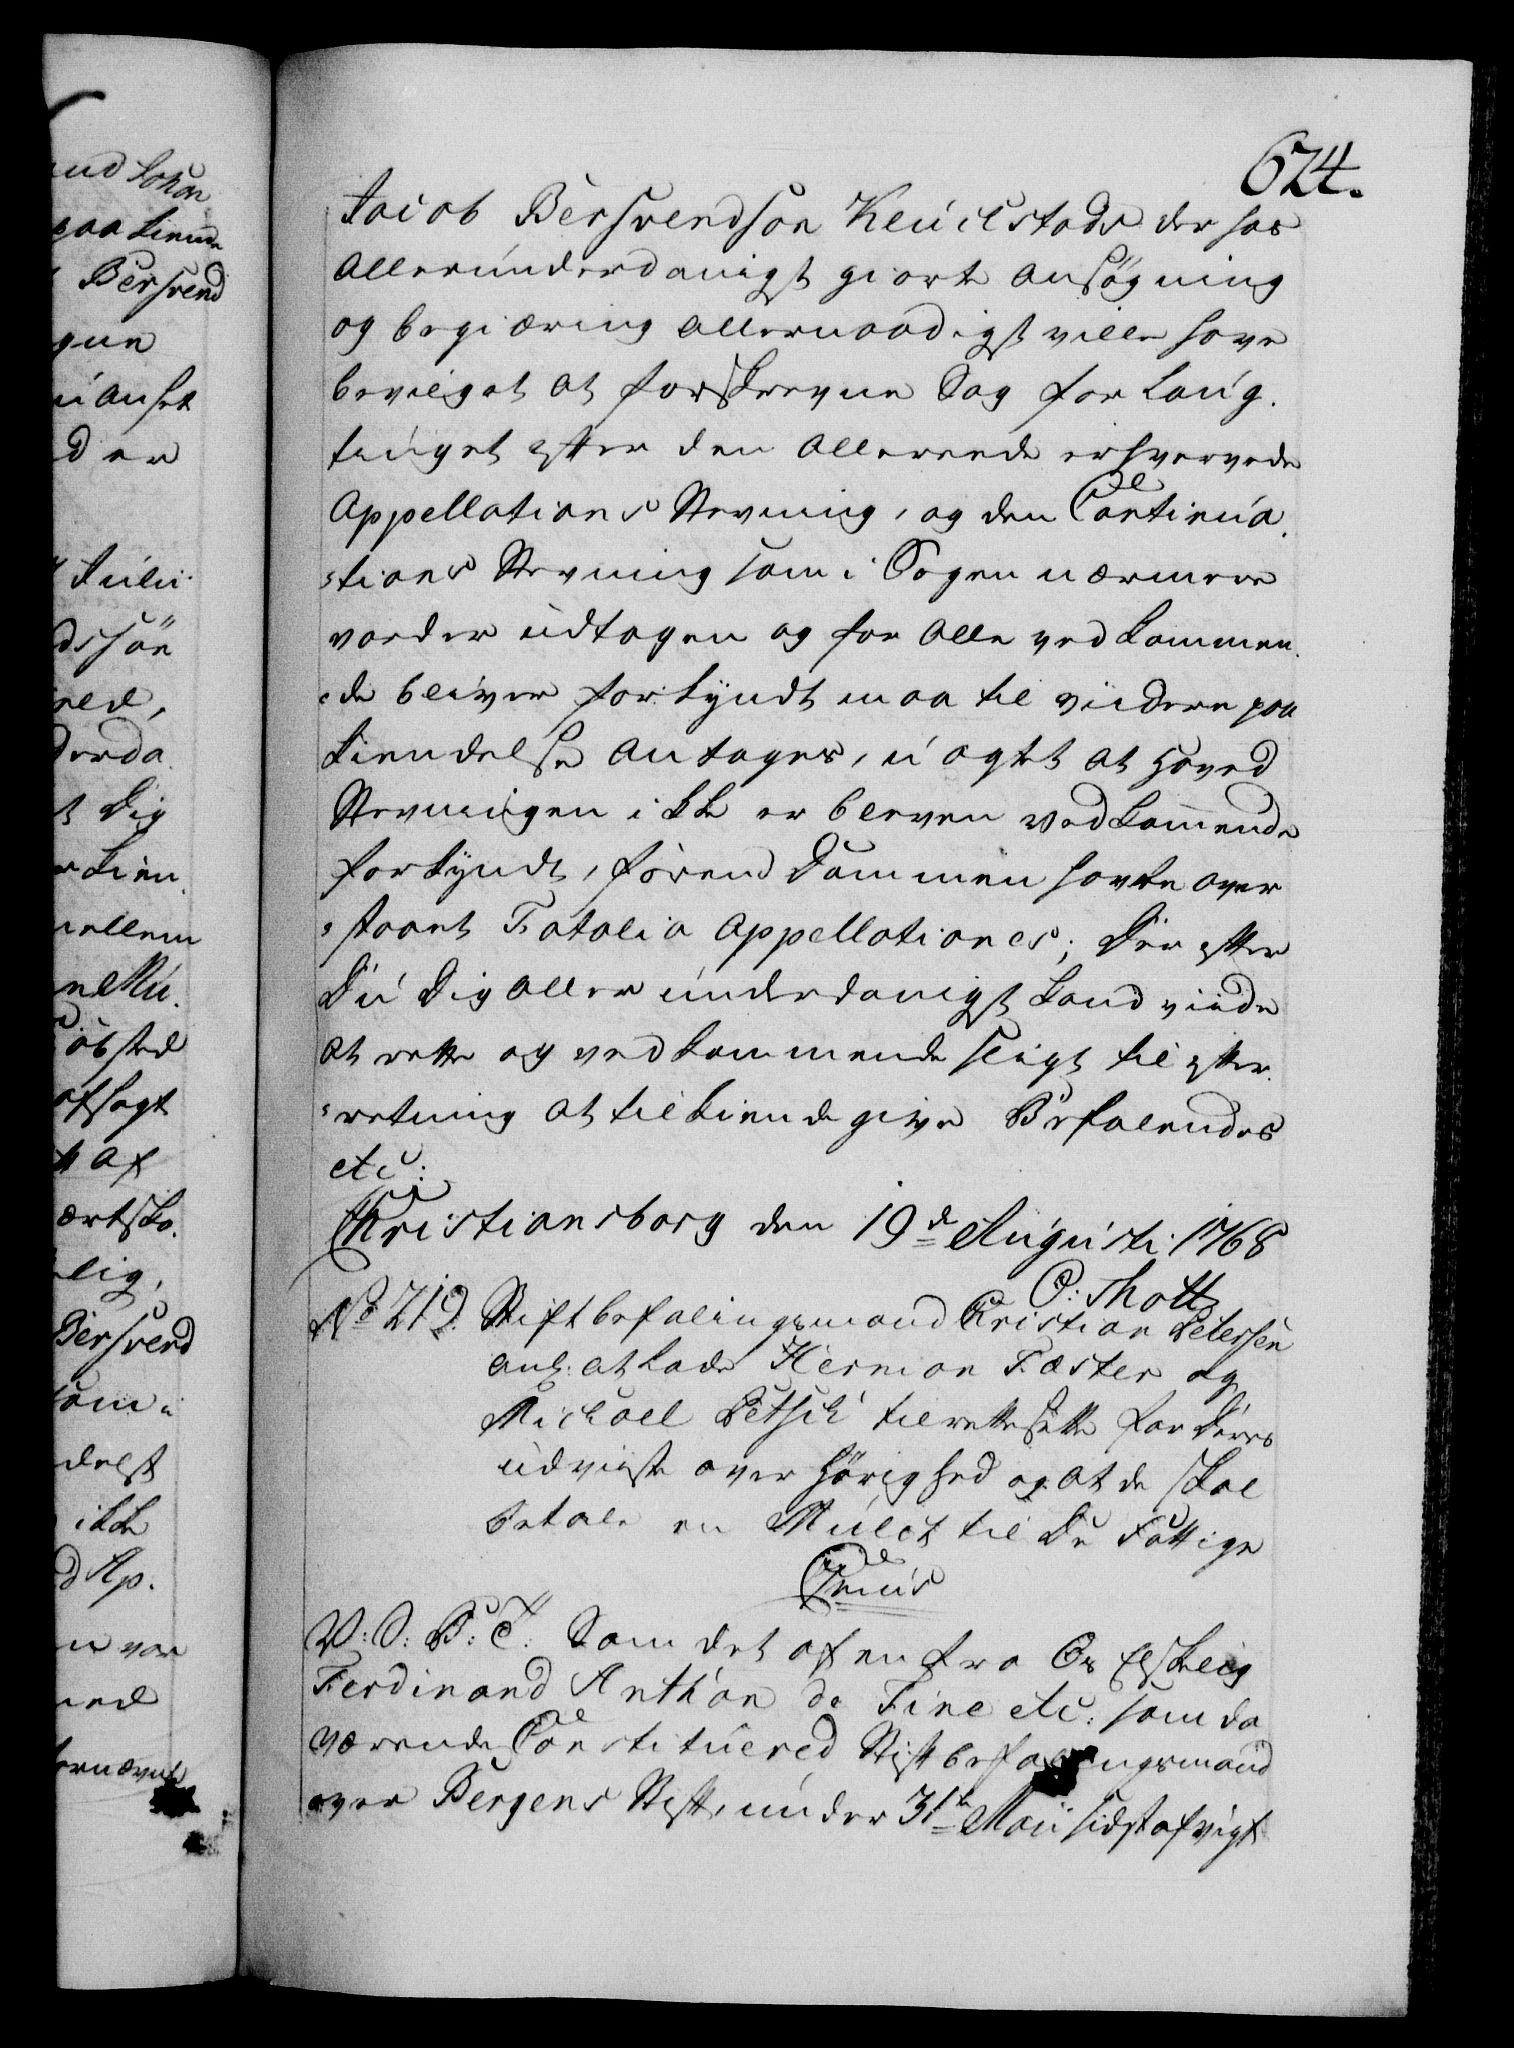 624.
Jacob Bersvendsøn Klúckstads der hos
allerúnderdanigst giorte ansøgning
og begiæring allernaadigst ville have
bevilget at forskrevne Sag for Laúg.
tinget efter den allerede erhvervede
Appellations Stevning, og den Continúa.
:tions Stevning som i Sagen nærmere
vorder údtagen og for alle vedkommen.
:de bliver forkyndt maa til viidere paa
kiendelse antages, ú agtet at Hoved
Stevningen ikke er bleven vedkom̄ende
forkyndt, førend Dommen havde over
:staaet Fatalia Appellationes; Der efter
Dú Dig aller únderdanigst haver at
at rette og vedkommende sligt til efter.
:retning at tilkiende give Befalendes
etc:
Christiansborg den 19de Augústi 1768
O: Thott
No 219. Stiftbefalingsmand Christian Petersen
anb: at lade Herman Fæster og
Michael Pètsch tilrettesætte for deres
údviiste over hørighed og at de skal
betale en Múlct til De Fattige
V: S: B: T: Som det af en fra Os Elskelig
Ferdinand Anthon de Fine etc: som da
værende Constitúered Stiftbefalingsmand
over Bergens Stift, únder 31te Maii sidst afvigt